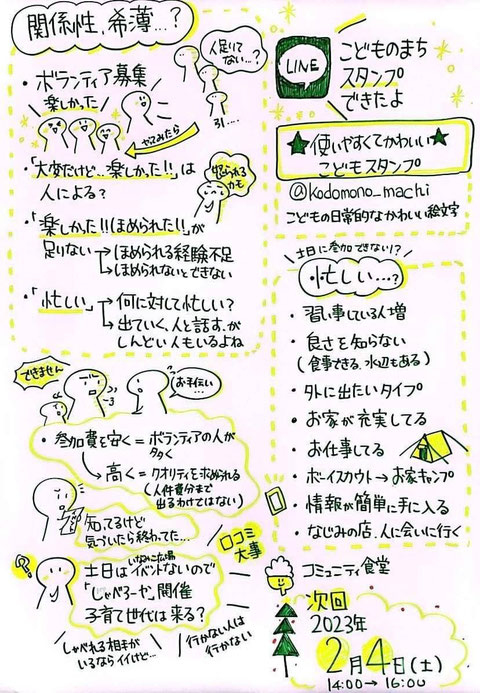 関係性、希薄…？
人足りてない…？
・ボランティア募集
楽しかった！
やってみたら
引…
・「大変だけど…楽しかった!!」は
人による？
怒られるかも
・「楽しかった!!ほめられた!!」が
足りない→ほめられる経験不足
→ほめられないとできない
・「忙しい」→何に対して忙しい？
→出ていく、人と話す、が
しんどい人もいるよね
できません
お手伝い…
・参加費を安く＝ボランティアの人が
多く
→高く＝クオリティを求められる
（人件費分まで
出るわけではない）
知ってるけど
気づいたら終わってた…
口コミ
大事
土日はイベントないので
いなみに広場
「しゃべろーや」開催
子育て世代は来る？
しゃべれる相手が
いるならイイけど…
行かない人は
行かない
LINE
こどものまち
スタンプ
できたよ
★使いやすくてかわいい★
こどもスタンプ
@kodomono_machi
こどもの日常的なかわいい絵文字
土日に参加できない!?
忙しい…？
・習い事している人増
・良さを知らない
（食事できる、水辺もある）
・外に出たいタイプ
・お家が充実してる
・お仕事してる
・ボーイスカウト→お家キャンプ
・情報が簡単に手に入る
・なじみの店、人に会いに行く
コミュニティ食堂
次回
2023年
2月4日(土)
14:00→16:00